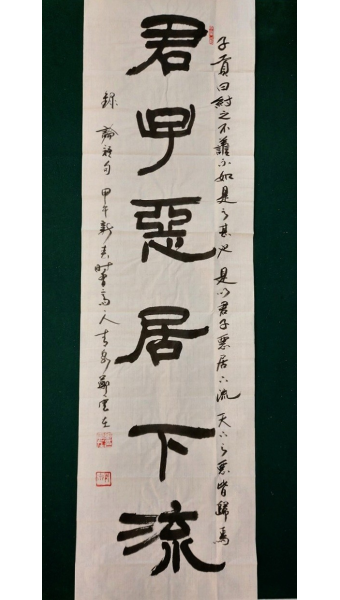 子貢曰紂之不善不如是之甚也是以君子惡居下流天下之惡皆歸焉
君子惡居下流
錄論語句甲午新春